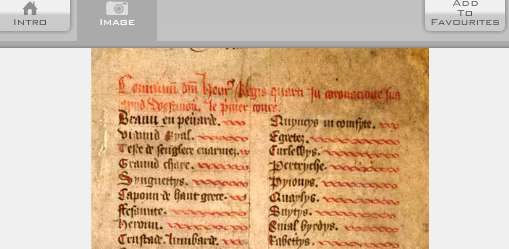 Intro
Image
Add
To
Favourites
Conuiuiū dm̄ Henr' Regis quarti In coronacione sua
apud Westmon'. le p'mer cours.
Braun en peuuerarde.
Viaund Ryal.
Teste de senglere enarmez.
Graund chare.
Syngnettys.
Capoun de haut grece.
ffesaunte.
Heroun.
Crustade lumbarde.
Quynces in comfyte.
Egretez.
Curlewys.
Pertryche.
Pyionys.
Quaylys.
Snytys.
Smal byrdys.
Rabettys.